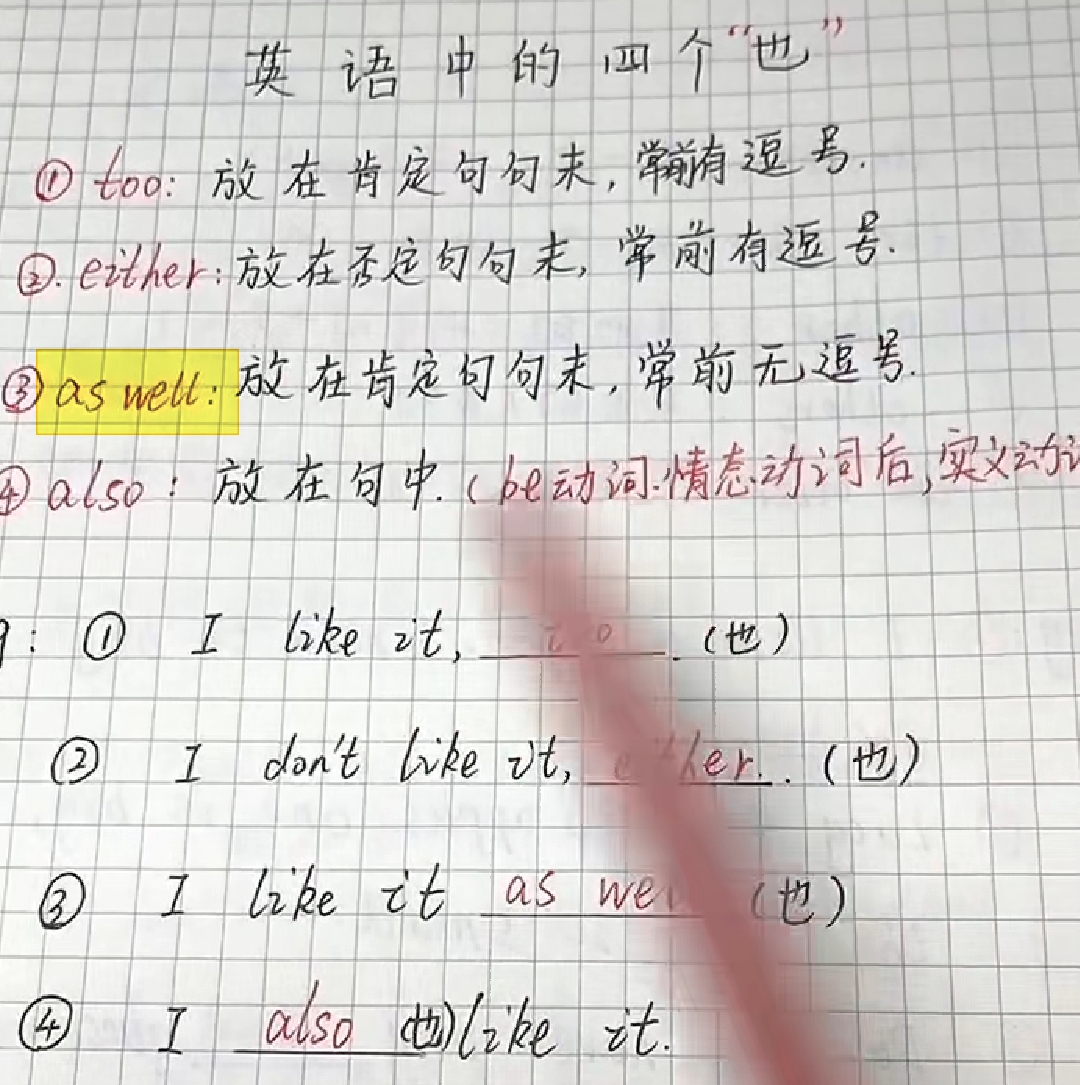 英语中的四个“也”
① too: 放在肯定句句末, 常前有逗号.
②. either: 放在否定句句末, 常前有逗号.
③ as well: 放在肯定句句末, 常前无逗号.
④ also: 放在句中. (be动词.情态动词后,实义动
: ① I like it, . (也)
② I don't like it, . (也)
③ I like it as (也)
④ I also (也)like it.